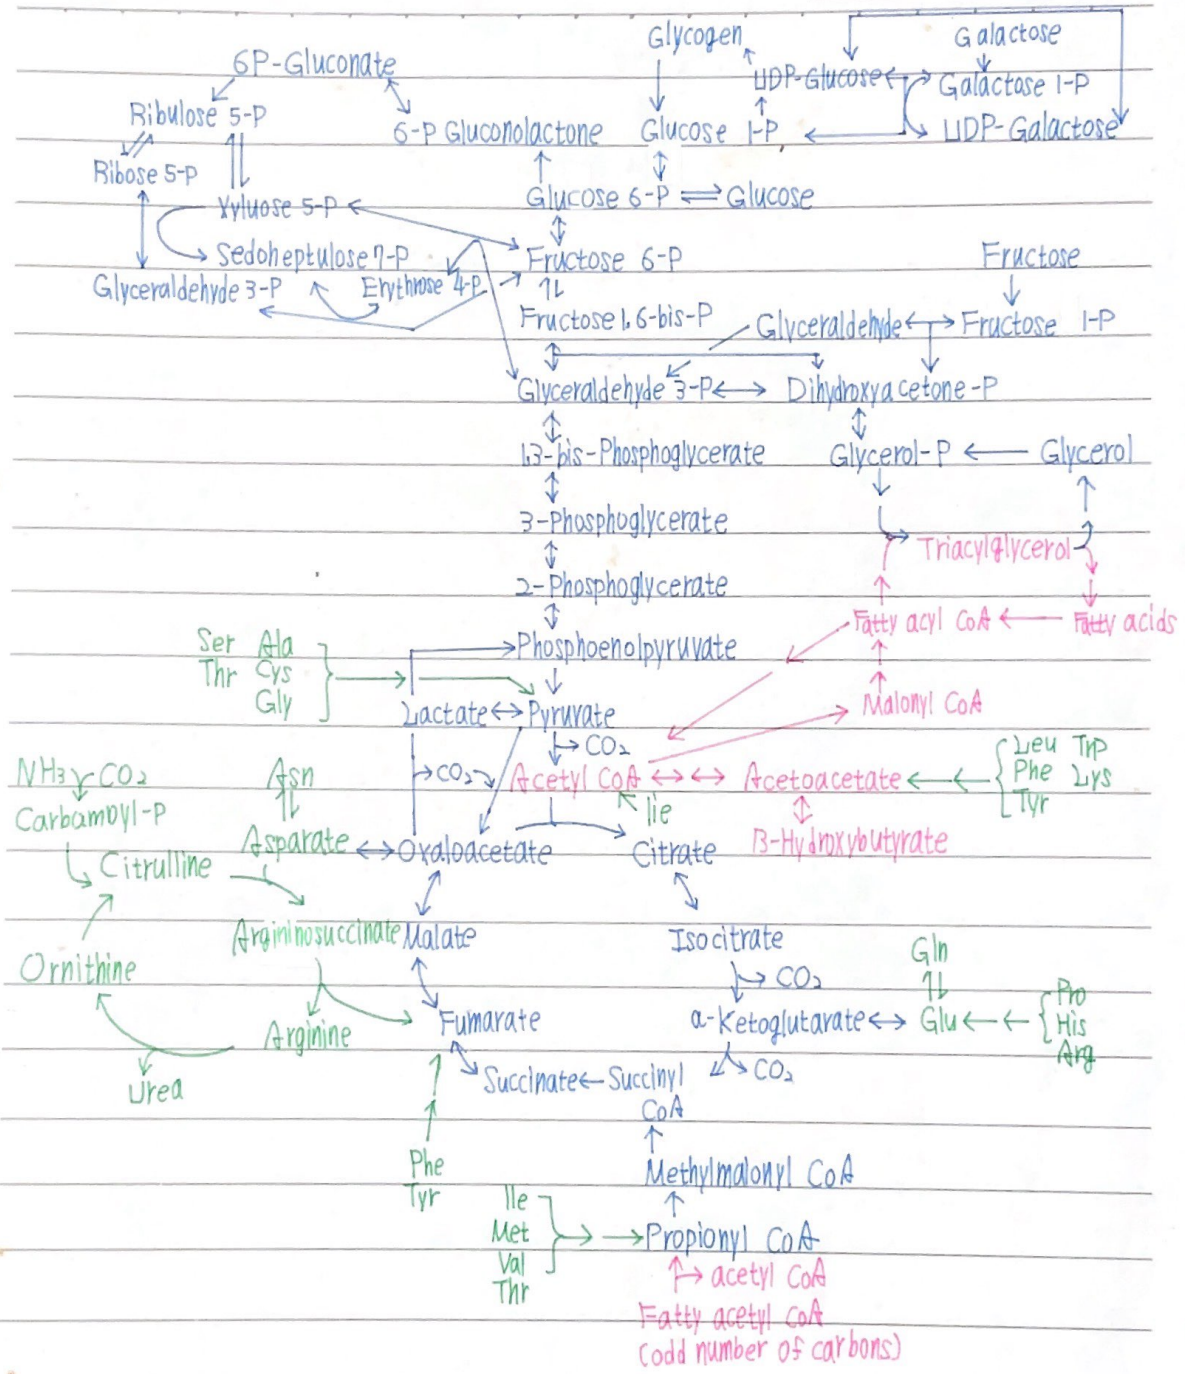 Glycogen
Galactose
6P-Gluconate
UDP-Glucose
Galactose 1-P
Ribulose 5-P
6-P Gluconolactone
Glucose 1-P
UDP-Galactose
Ribose 5-P
Glucose 6-P
Glucose
Xyluose 5-P
Sedoheptulose 7-P
Fructose 6-P
Fructose
Glyceraldehyde 3-P
Erythrose 4-P
Fructose 1,6-bis-P
Glyceraldehyde
Fructose 1-P
Glyceraldehyde 3-P
Dihydroxyacetone-P
1,3-bis-Phosphoglycerate
Glycerol-P
Glycerol
3-Phosphoglycerate
Triacylglycerol
2-Phosphoglycerate
Fatty acyl CoA
Fatty acids
Ser Ala
Thr Cys
Gly
Phosphoenolpyruvate
Lactate
Pyruvate
Malonyl CoA
CO2
Leu Trp
Phe Lys
Tyr
NH3 CO2
Asn
CO2
Acetyl CoA
Acetoacetate
Carbamoyl-P
Ile
Asparate
Oxaloacetate
Citrate
B-Hydroxybutyrate
Citrulline
Argininosuccinate
Malate
Isocitrate
Gln
Ornithine
CO2
Pro
His
Arg
Arginine
Fumarate
α-Ketoglutarate
Glu
Urea
Succinate
Succinyl
CoA
CO2
Phe
Tyr
Methylmalonyl CoA
Ile
Met
Val
Thr
Propionyl CoA
acetyl CoA
Fatty acetyl CoA
(odd number of carbons)